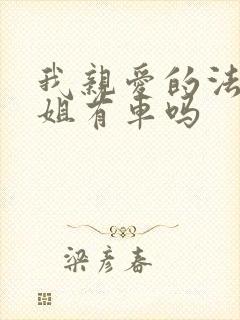 我親愛的法
姐有車吗
梁彦春